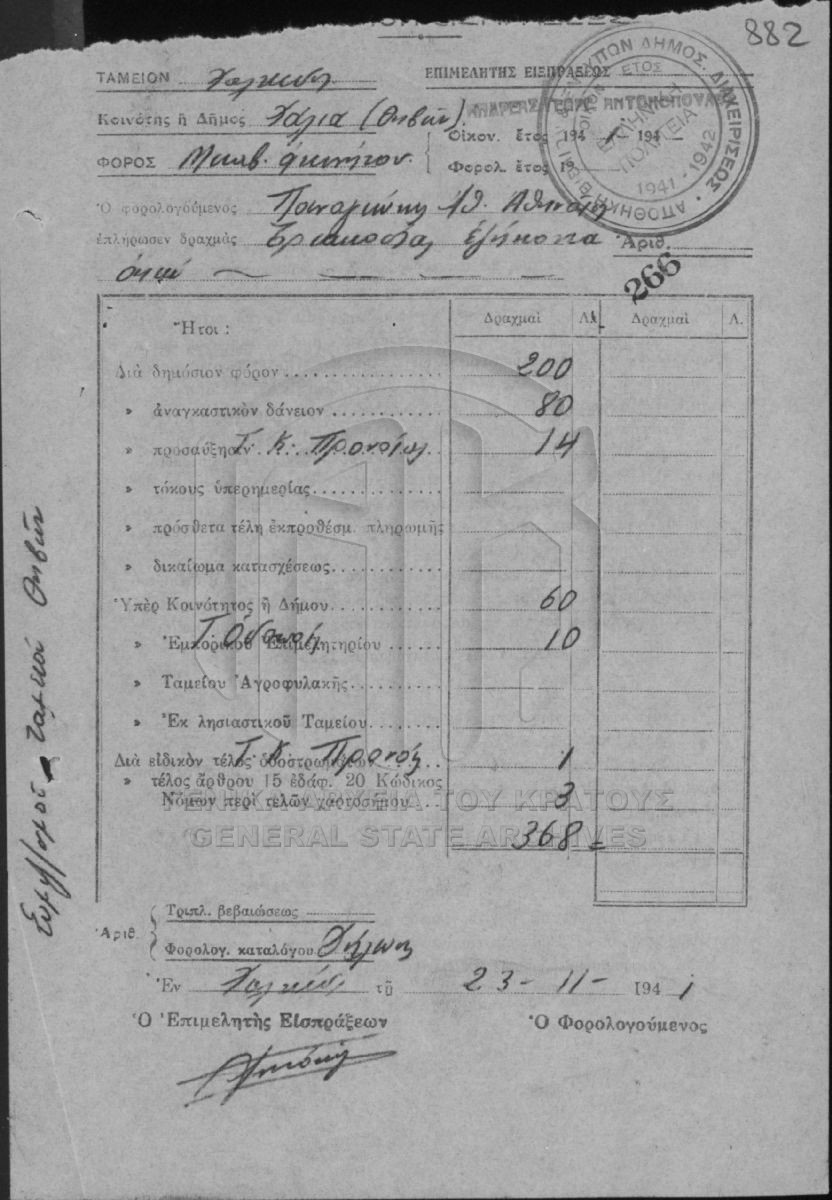 882
ΤΑΜΕΙΟΝ Χαλκίδος
ΕΠΙΜΕΛΗΤΗΣ ΕΙΣΠΡΑΞΕΩΣ
ΑΝΔΡΕΑΣ ΓΕΩΡ. ΑΝΤΩΝΟΠΟΥΛΟΣ
ΑΠΟΘΗΚΗ ΔΗΜΟΣ. ΔΙΑΧΕΙΡΙΣΕΩΣ
ΟΙΚΟΝ. ΕΤΟΣ 1941-1942
ΕΛΛΗΝΙΚΗ ΠΟΛΙΤΕΙΑ
Κοινότης ἢ Δῆμος Χάλια (Θηβῶν).
Οἰκον. ἔτος 1941 194
ΦΟΡΟΣ Μεταβ. ἀκινήτου
Φορολ. ἔτος 19
Ὁ φορολογούμενος Παναγιώτης Ἀθ.
ἐπλήρωσεν δραχμὰς Τριακοσίας ἑξήκοντα
Ἀριθ. 266
ὀκτώ
Ἤτοι :
Δραχμαὶ Λ. Δραχμαὶ Λ.
Διὰ δημόσιον φόρον 200
» ἀναγκαστικὸν δάνειον 80
» προσαύξησιν Τ. Κ. Προνοίας 14
» τόκους ὑπερημερίας
» πρόσθετα τέλη ἐκπροθέσμ. πληρωμῆς
» δικαίωμα κατασχέσεως
Ὑπὲρ Κοινότητος ἢ Δήμου 60
» Ἐμπορικοῦ Ἐπιμελητηρίου 10
» Ταμείου Ἀγροφυλακῆς
» Ἐκ λησιαστικοῦ Ταμείου
Διὰ εἰδικὸν τέλος ὁδοστρωμάτων Τ. Κ. 1
» τέλος ἄρθρου 15 ἐδάφ. 20 Κώδικος
Νόμων περὶ τελῶν χαρτοσήμου 3
368
ΓΕΝΙΚΑ ΑΡΧΕΙΑ ΤΟΥ ΚΡΑΤΟΥΣ
GENERAL STATE ARCHIVES
Ἀριθ.
Τριπλ. βεβαιώσεως
Φορολογ. καταλόγου
Ἐν Χαλκίδι τῇ 23-11-1941
Ὁ Ἐπιμελητὴς Εἰσπράξεων
Ὁ Φορολογούμενος
Συμψηφισμός Ταμεῖο Θηβῶν